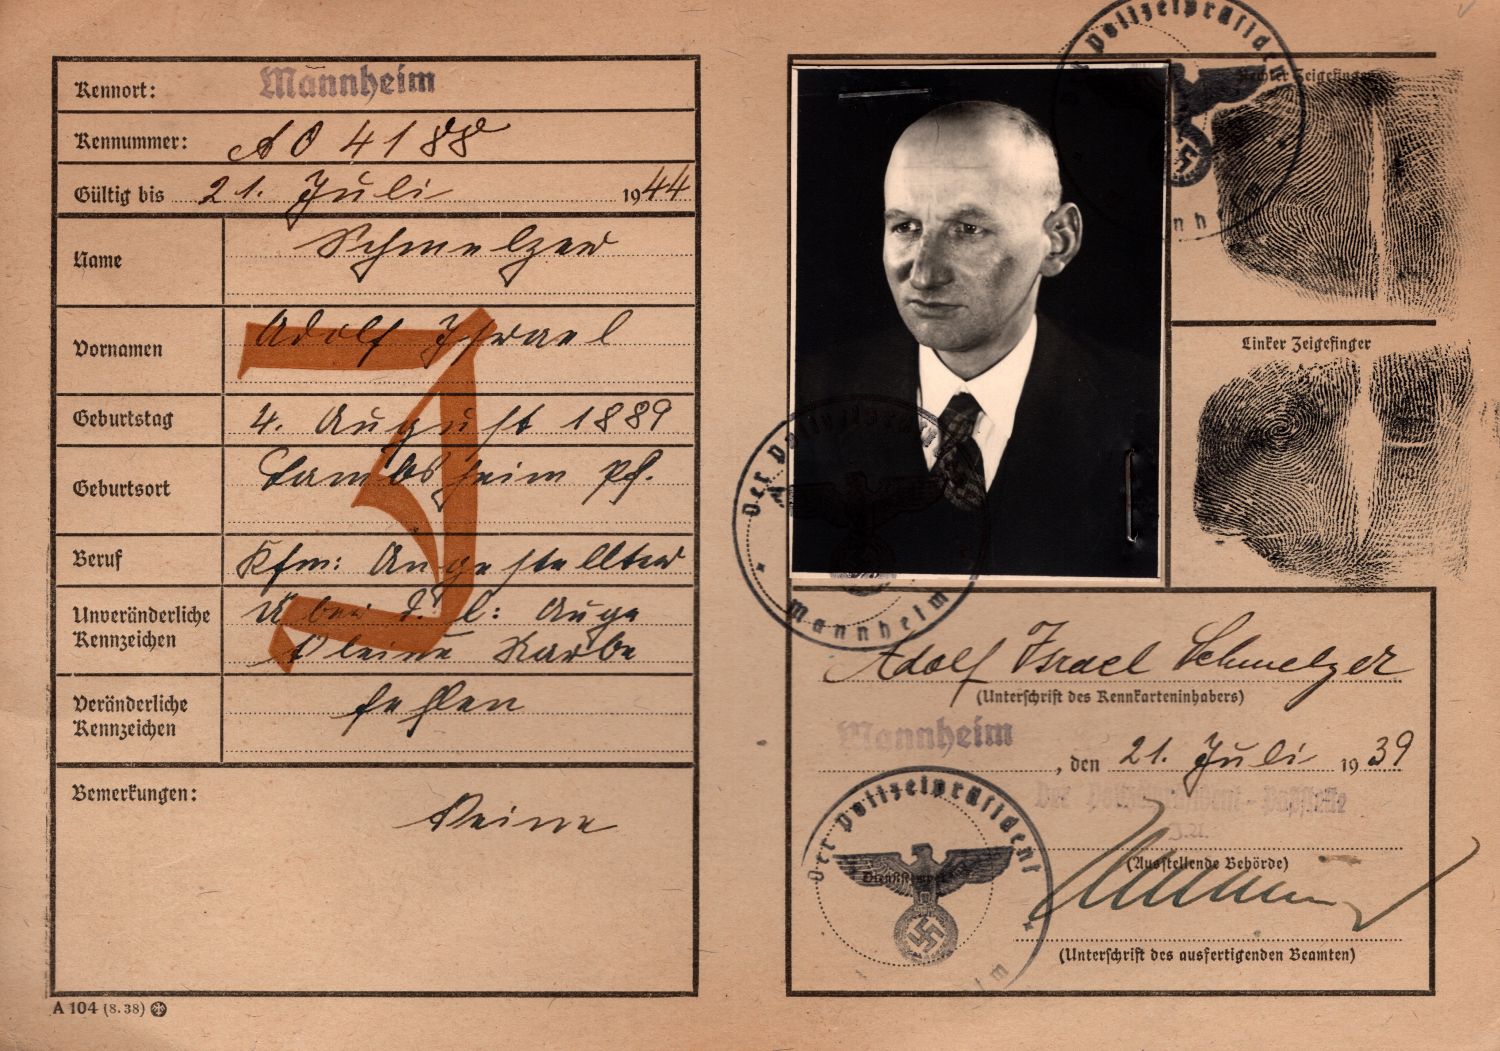 Kennort: Mannheim
Kennummer: A 04188
Gültig bis 21. Juli 1944
Name Schmelzer
Vornamen Adolf Israel
J
Geburtstag 4. August 1889
Geburtsort Lambsheim Pf.
Beruf Kfm: Angestellter
Unveränderliche Kennzeichen Über d. l: Auge
kleine Narbe
Veränderliche Kennzeichen fehlen
Bemerkungen: Keine
A 104 (8. 38)
Der Polizeipräsident
Mannheim
Rechter Zeigefinger
Linker Zeigefinger
Der Polizeipräsident
Mannheim
Adolf Israel Schmelzer
(Unterschrift des Kennkarteninhabers)
Mannheim, den 21. Juli 1939
Der Polizeipräsident - Paßstelle
J.A.
(Ausstellende Behörde)
Der Polizeipräsident
Dienststempel
(Unterschrift des ausfertigenden Beamten)